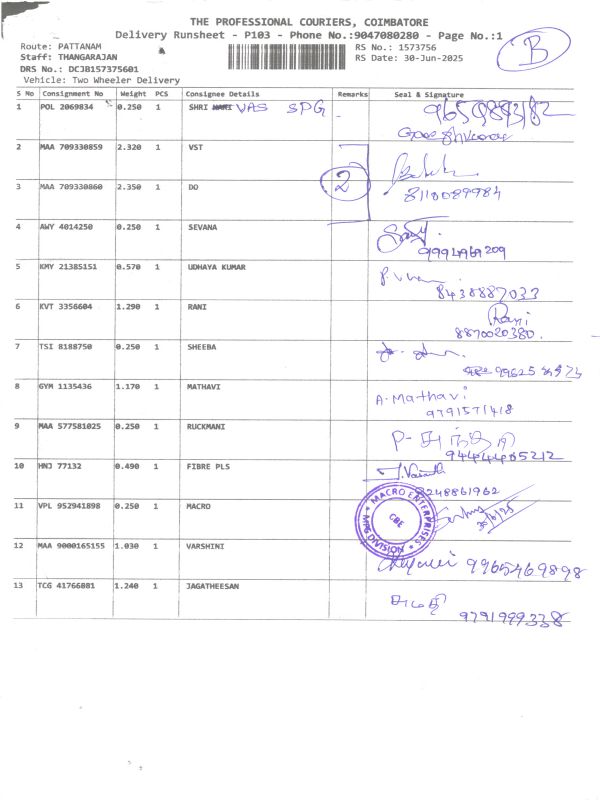 THE PROFESSIONAL COURIERS, COIMBATORE
Delivery Runsheet - P103 - Phone No.:9047080280 - Page No.:1
B
Route: PATTANAM
RS No.: 1573756
Staff: THANGARAJAN
RS Date: 30-Jun-2025
DRS No.: DCJB157375601
Vehicle: Two Wheeler Delivery
S No Consignment No Weight PCS Consignee Details Remarks Seal & Signature
1 POL 2069834 0.250 1 SHRI VAS SPG
2 MAA 709330859 2.320 1 VST
2
3 MAA 709330860 2.350 1 DO
8110089984
4 AWY 4014250 0.250 1 SEVANA
9994969209
5 KMY 21385151 0.570 1 UDHAYA KUMAR
8438887033
6 KVT 3356604 1.290 1 RANI Rani
8870020380.
7 TSI 8188750 0.250 1 SHEEBA
8 GYM 1135436 1.170 1 MATHAVI A. Mathavi
9791571418
9 MAA 577581025 0.250 1 RUCKMANI
9444465212
10 HNJ 77132 0.490 1 FIBRE PLS
8248861962
11 VPL 952941898 0.250 1 MACRO
MACRO ENTERPRISES
CBE
MFG DIVISION
30/6/25
12 MAA 9000165155 1.030 1 VARSHINI
9965469898
13 TCG 41766081 1.240 1 JAGATHEESAN
சுமதி
9791999338